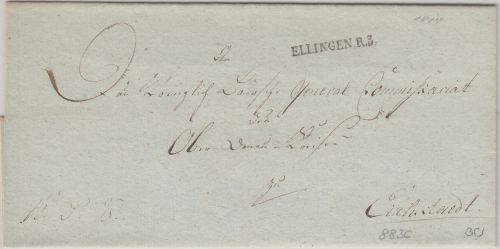 1814
An
ELLINGEN.R.3.
Das Königlich Baiersche General Commissariat
des
Ober Donau Kreises
zu
Eichstaedt.
8836